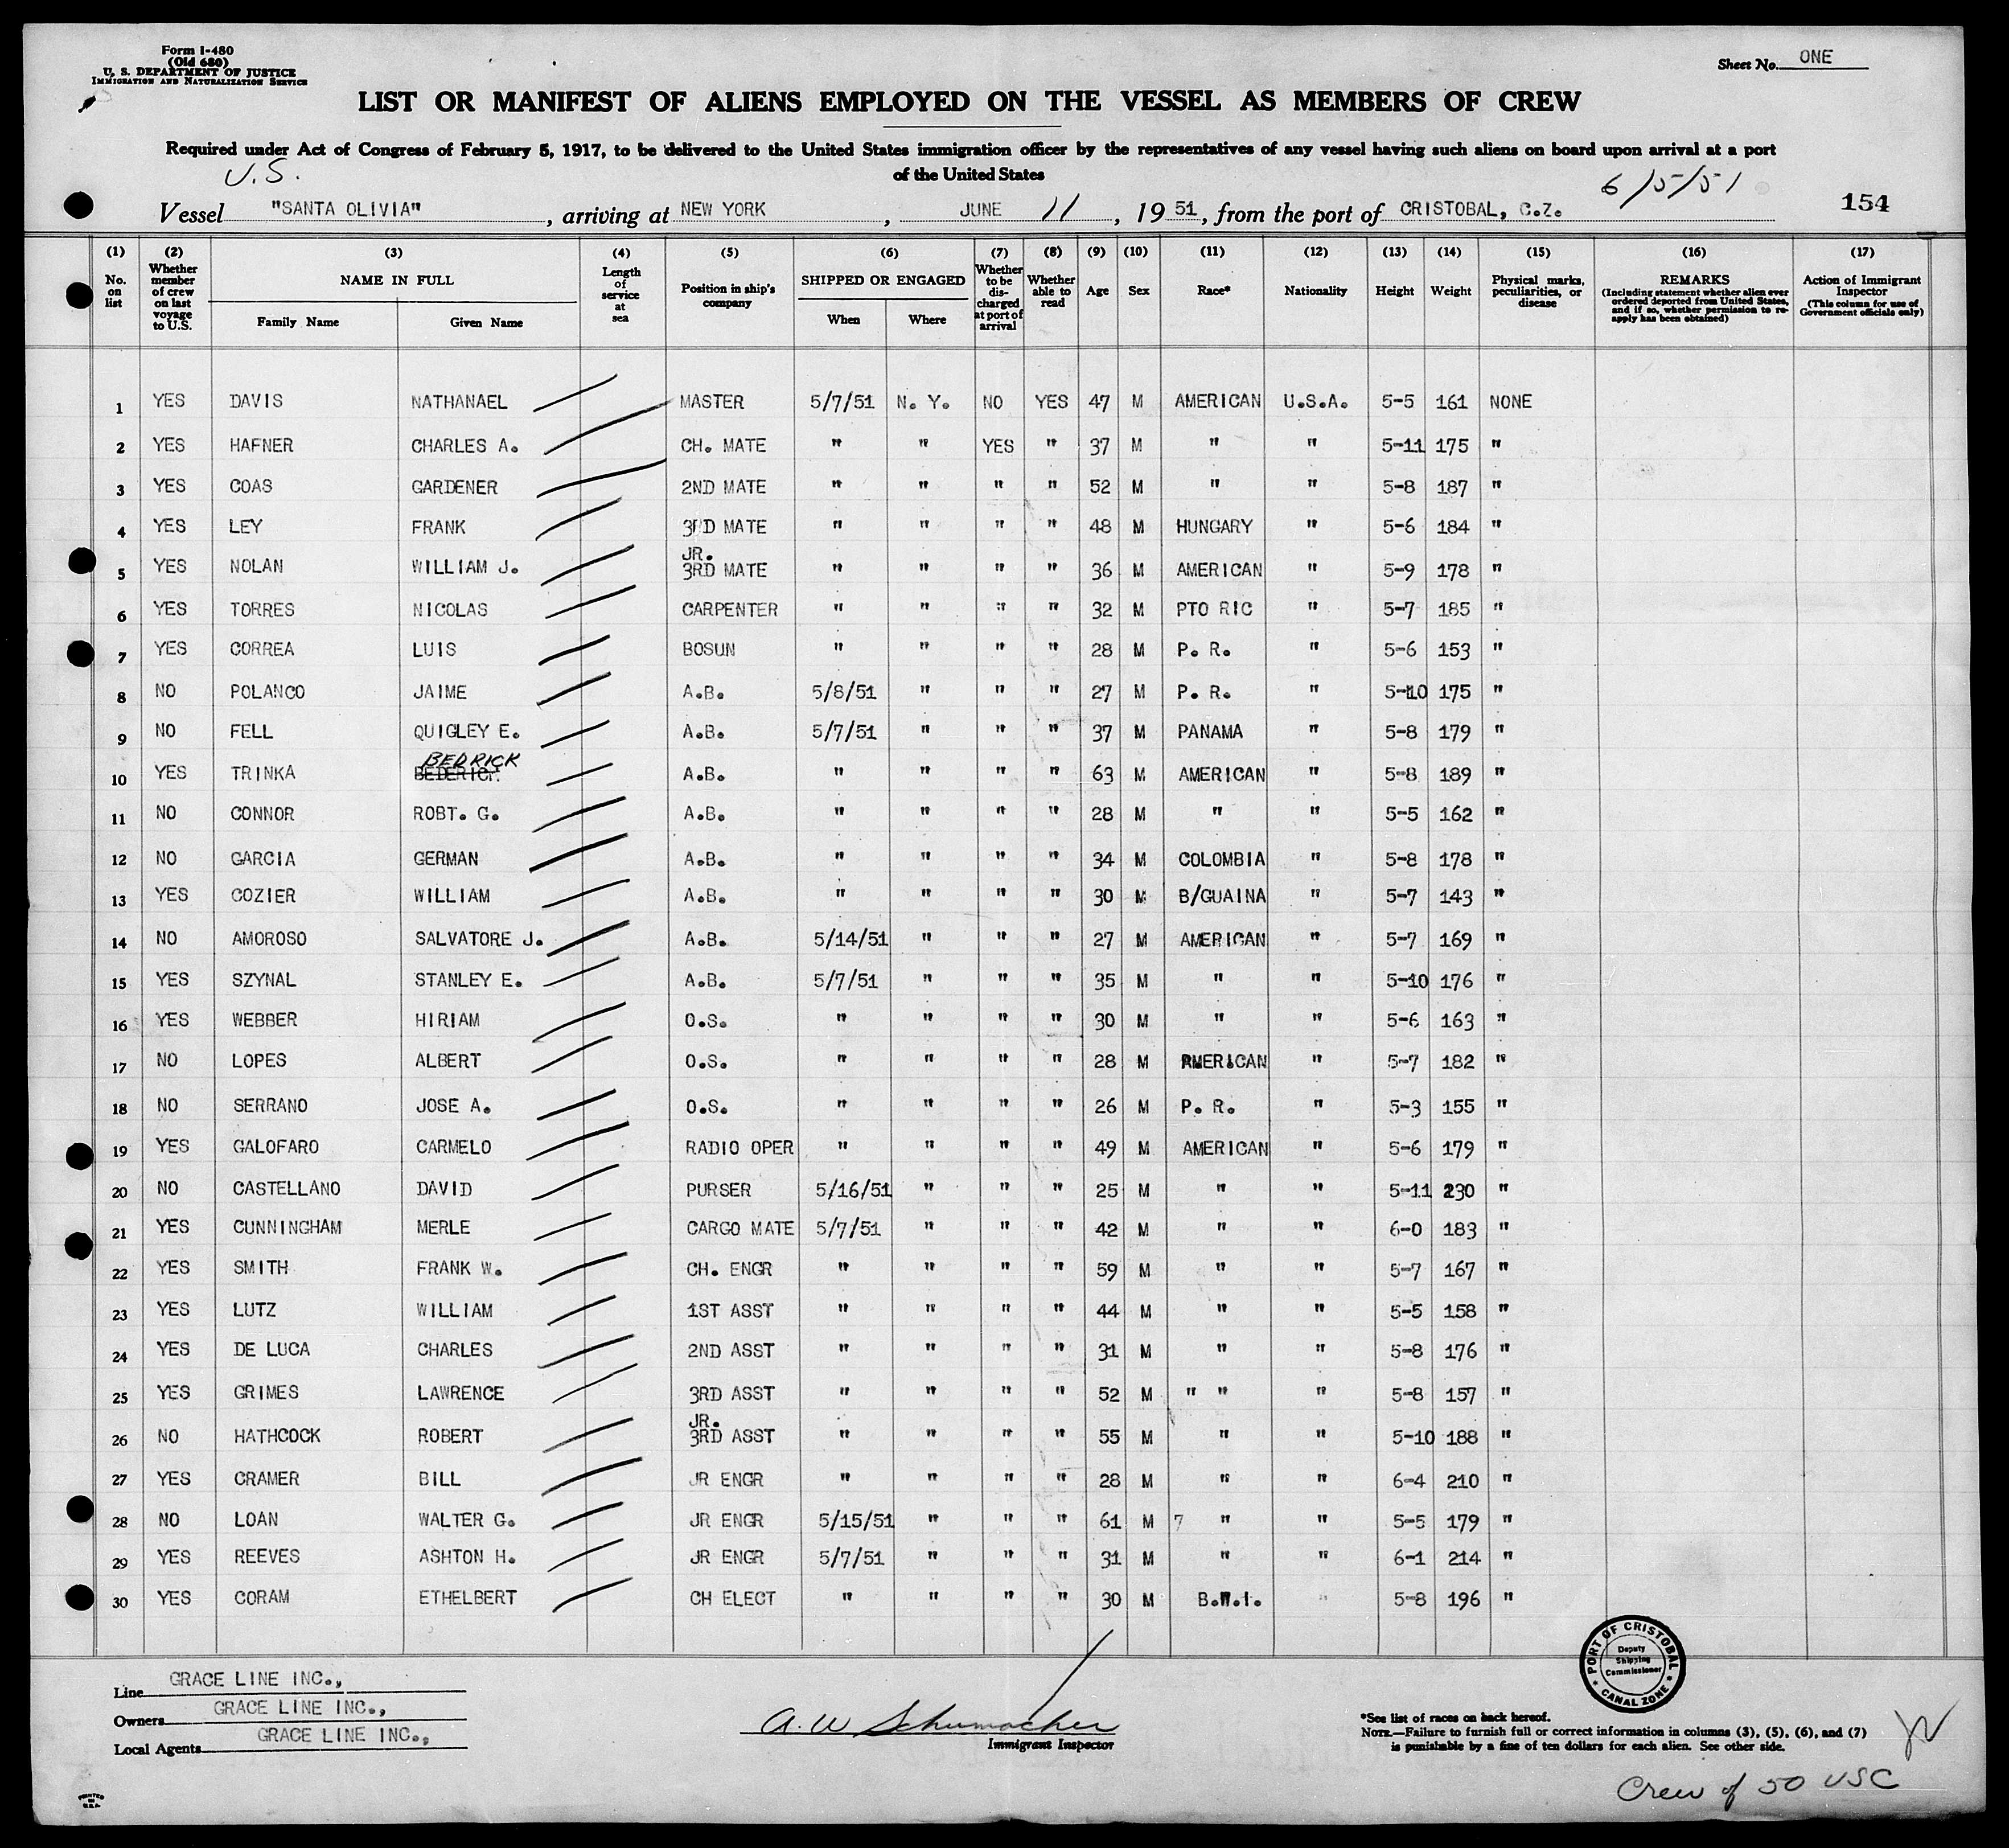 Form I-480
(Old 680)
U. S. DEPARTMENT OF JUSTICE
IMMIGRATION AND NATURALIZATION SERVICE
Sheet No. ONE
LIST OR MANIFEST OF ALIENS EMPLOYED ON THE VESSEL AS MEMBERS OF CREW
Required under Act of Congress of February 5, 1917, to be delivered to the United States immigration officer by the representatives of any vessel having such aliens on board upon arrival at a port
of the United States
U.S.
6/5/51
Vessel "SANTA OLIVIA", arriving at NEW YORK, JUNE 11, 1951, from the port of CRISTOBAL, C.Z.
154
(1) No. on list
(2) Whether member of crew on last voyage to U.S.
(3) NAME IN FULL Family Name Given Name
(4) Length of service at sea
(5) Position in ship's company
(6) SHIPPED OR ENGAGED When Where
(7) Whether to be discharged at port of arrival
(8) Whether able to read
(9) Age
(10) Sex
(11) Race*
(12) Nationality
(13) Height
(14) Weight
(15) Physical marks, peculiarities, or disease
(16) REMARKS (Including statement whether alien ever ordered deported from United States, and if so, whether permission to reapply has been obtained)
(17) Action of Immigrant Inspector (This column for use of Government officials only)
1 YES DAVIS NATHANAEL MASTER 5/7/51 N. Y. NO YES 47 M AMERICAN U.S.A. 5-5 161 NONE
2 YES HAFNER CHARLES A. CH. MATE " " YES " 37 M " " 5-11 175 "
3 YES COAS GARDENER 2ND MATE " " " " 52 M " " 5-8 187 "
4 YES LEY FRANK 3RD MATE " " " " 48 M HUNGARY " 5-6 184 "
5 YES NOLAN WILLIAM J. JR. 3RD MATE " " " " 36 M AMERICAN " 5-9 178 "
6 YES TORRES NICOLAS CARPENTER " " " " 32 M PTO RIC " 5-7 185 "
7 YES CORREA LUIS BOSUN " " " " 28 M P. R. " 5-6 153 "
8 NO POLANCO JAIME A.B. 5/8/51 " " " 27 M P. R. " 5-10 175 "
9 NO FELL QUIGLEY E. A.B. 5/7/51 " " " 37 M PANAMA " 5-8 179 "
10 YES TRINKA BEDRICK A.B. " " " " 63 M AMERICAN " 5-8 189 "
11 NO CONNOR ROBT. G. A.B. " " " " 28 M " " 5-5 162 "
12 NO GARCIA GERMAN A.B. " " " " 34 M COLOMBIA " 5-8 178 "
13 YES COZIER WILLIAM A.B. " " " " 30 M B/GUAINA " 5-7 143 "
14 NO AMOROSO SALVATORE J. A.B. 5/14/51 " " " 27 M AMERICAN " 5-7 169 "
15 YES SZYNAL STANLEY E. A.B. 5/7/51 " " " 35 M " " 5-10 176 "
16 YES WEBBER HIRIAM O.S. " " " " 30 M " " 5-6 163 "
17 NO LOPES ALBERT O.S. " " " " 28 M AMERICAN " 5-7 182 "
18 NO SERRANO JOSE A. O.S. " " " " 26 M P. R. " 5-3 155 "
19 YES GALOFARO CARMELO RADIO OPER " " " " 49 M AMERICAN " 5-6 179 "
20 NO CASTELLANO DAVID PURSER 5/16/51 " " " 25 M " " 5-11 230 "
21 YES CUNNINGHAM MERLE CARGO MATE 5/7/51 " " " 42 M " " 6-0 183 "
22 YES SMITH FRANK W. CH. ENGR " " " " 59 M " " 5-7 167 "
23 YES LUTZ WILLIAM 1ST ASST " " " " 44 M " " 5-5 158 "
24 YES DE LUCA CHARLES 2ND ASST " " " " 31 M " " 5-8 176 "
25 YES GRIMES LAWRENCE 3RD ASST " " " " 52 M " " " 5-8 157 "
26 NO HATHCOCK ROBERT JR. 3RD ASST " " " " 55 M " " 5-10 188 "
27 YES CRAMER BILL JR ENGR " " " " 28 M " " 6-4 210 "
28 NO LOAN WALTER G. JR ENGR 5/15/51 " " " 61 M 7 " " 5-5 179 "
29 YES REEVES ASHTON H. JR ENGR 5/7/51 " " " 31 M " " 6-1 214 "
30 YES CORAM ETHELBERT CH ELECT " " " " 30 M B.W.I. " 5-8 196 "
Line GRACE LINE INC.,
Owners GRACE LINE INC.,
Local Agents GRACE LINE INC.,
A. W Schumacher
Immigrant Inspector
PORT OF CRISTOBAL
Deputy
Shipping
Commissioner
CANAL ZONE
*See list of races on back hereof.
NOTE.—Failure to furnish full or correct information in columns (3), (5), (6), and (7)
is punishable by a fine of ten dollars for each alien. See other side.
Crew of 50 USC
PRINTED
IN
U.S.A.